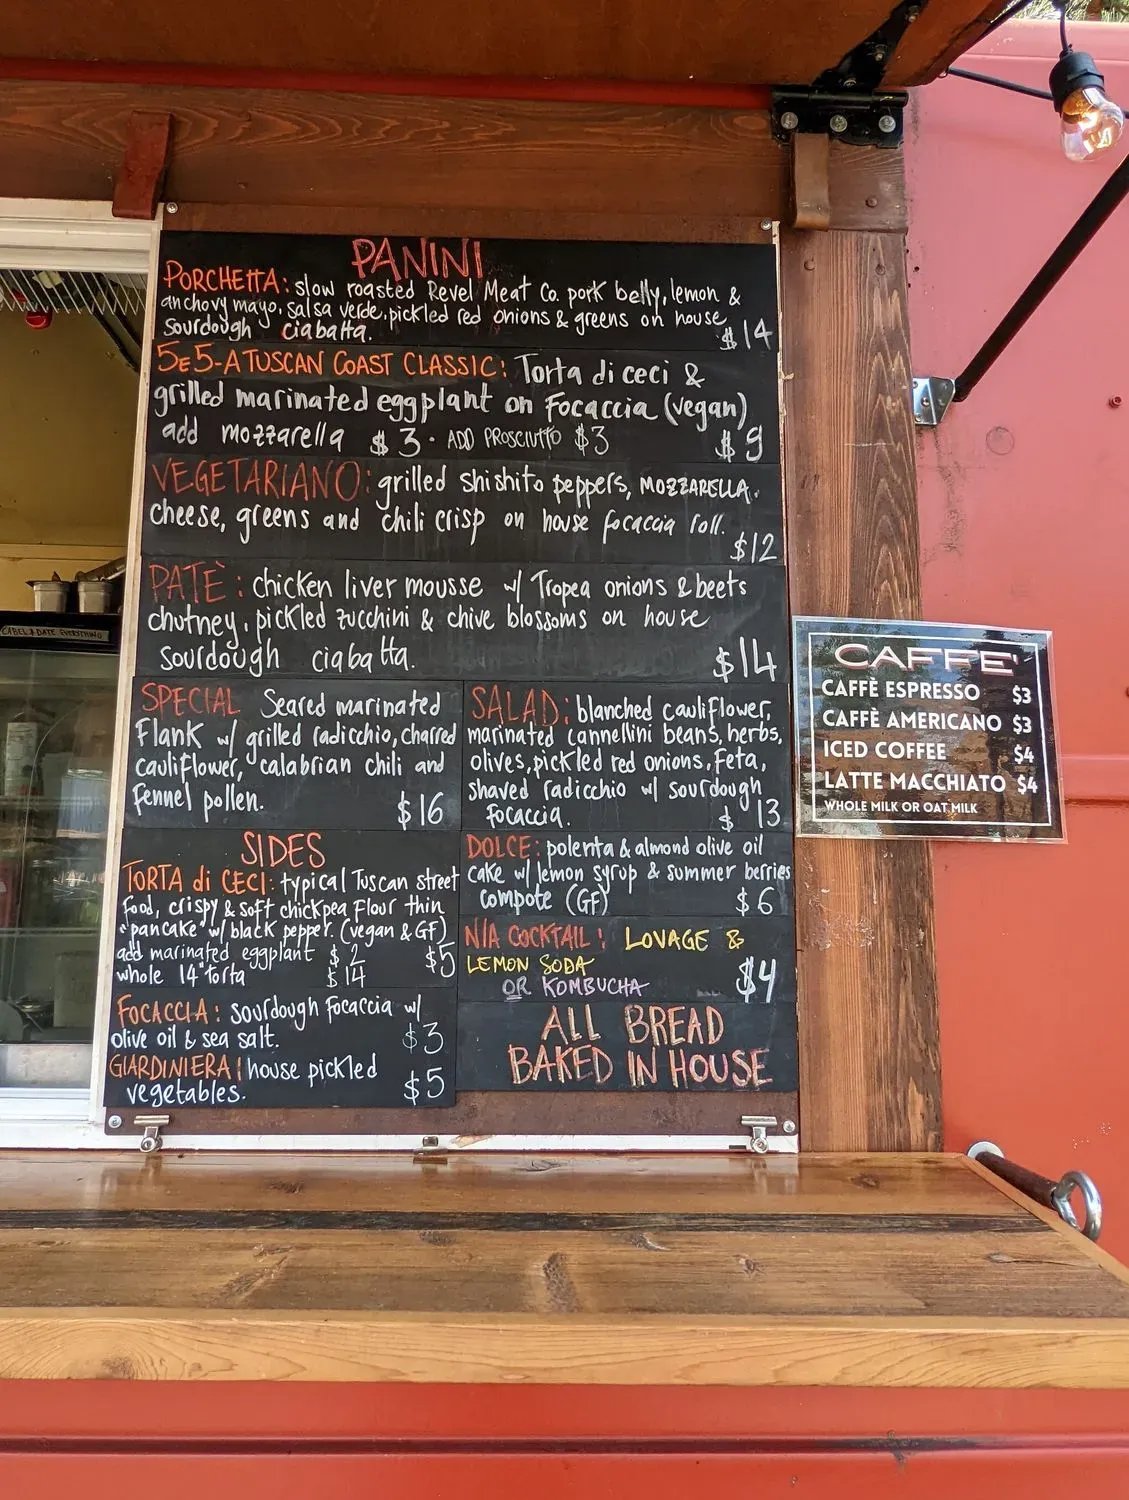 PANINI
PORCHETTA: slow roasted Revel Meat Co. pork belly, lemon &
anchovy mayo, salsa verde, pickled red onions & greens on house
sourdough ciabatta. $14
5E5-A TUSCAN COAST CLASSIC: Torta di ceci &
grilled marinated eggplant on Focaccia (vegan)
add mozzarella $3 · ADD PROSCIUTTO $3 $9
VEGETARIANO: grilled shishito peppers, MOZZARELLA.
cheese, greens and chili crisp on house focaccia roll.
$12
PATÈ: chicken liver mousse w/ Tropea onions & beets
chutney, pickled zucchini & chive blossoms on house
sourdough ciabatta. $14
SPECIAL Seared marinated
Flank w/ grilled radicchio, charred
cauliflower, calabrian chili and
fennel pollen. $16
SALAD: blanched cauliflower,
marinated cannellini beans, herbs,
olives, pickled red onions, Feta,
shaved radicchio w/ sourdough
Focaccia. $13
SIDES
TORTA di CECI: typical Tuscan street
food, crispy & soft chickpea flour thin
"pancake" w/ black pepper. (vegan & GF)
add marinated eggplant $2 $5
whole 14" torta $14
FOCACCIA: sourdough Focaccia w/
olive oil & sea salt. $3
GIARDINIERA: house pickled
vegetables. $5
DOLCE: polenta & almond olive oil
cake w/ lemon syrup & summer berries
compote (GF) $6
N/A COCKTAIL: LOVAGE &
LEMON SODA
OR KOMBUCHA $4
ALL BREAD
BAKED IN HOUSE
CAFFE'
CAFFÈ ESPRESSO $3
CAFFÈ AMERICANO $3
ICED COFFEE $4
LATTE MACCHIATO $4
WHOLE MILK OR OAT MILK
LABEL & DATE EVERYTHING